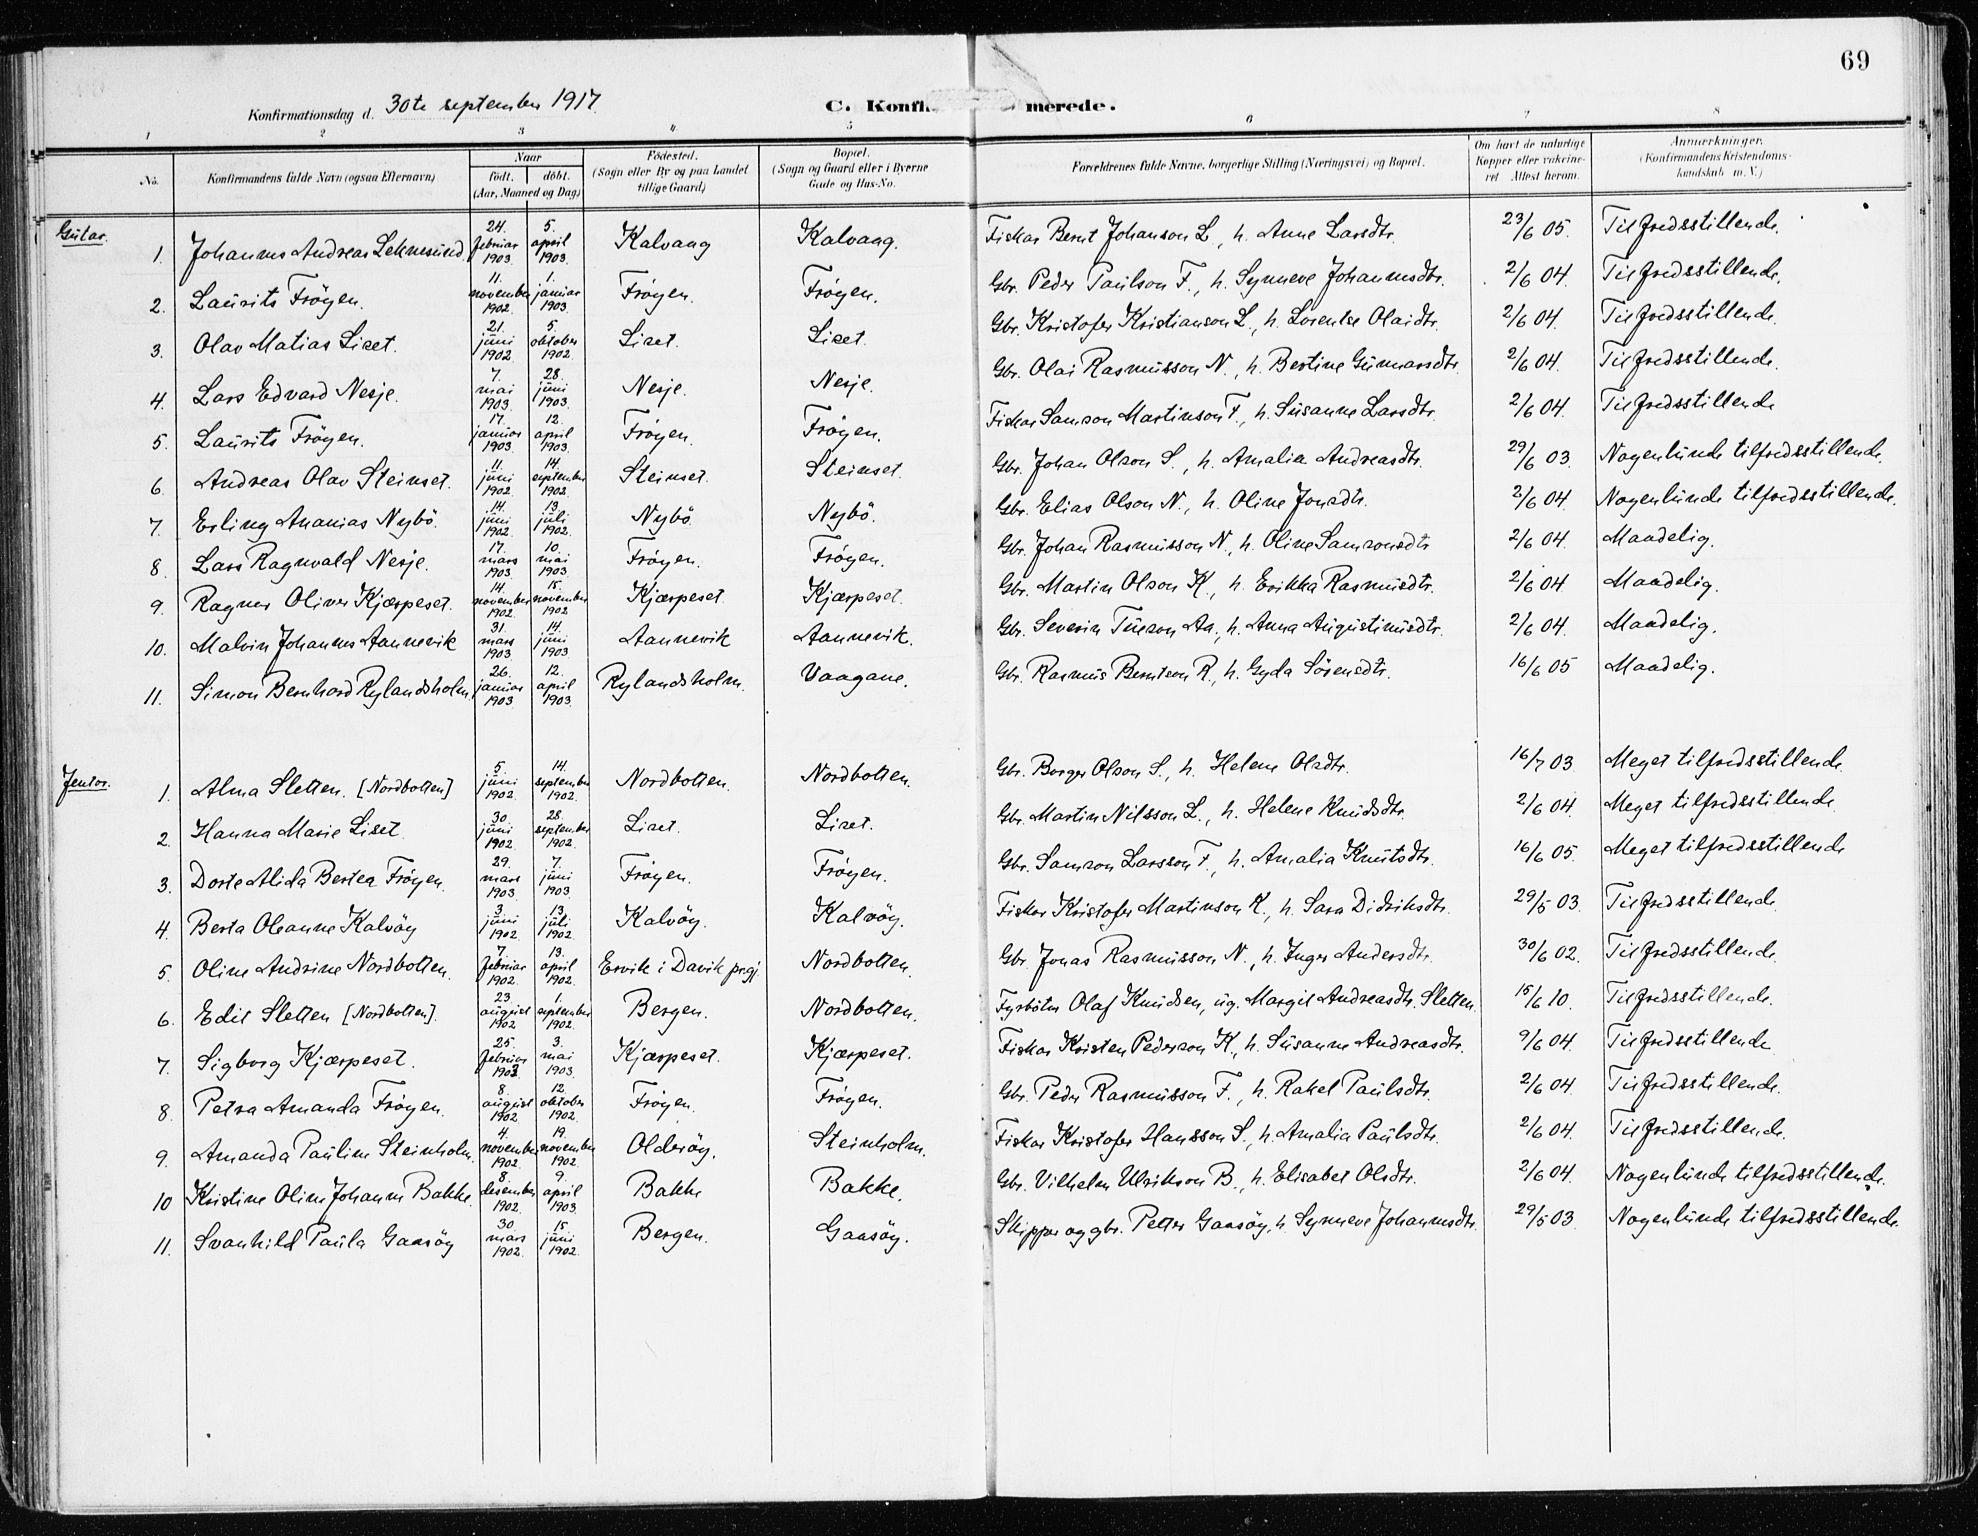 69
Konfirmationsdag d. 30te september 1917.
C. Konfi merede.
1 2 3 4 5 6 7 8
No. Konfirmandens fulde Navn (ogsaa Efternavn) Naar født. døbt. (Aar, Maaned og Dag) Fødested. (Sogn eller By og paa Landet tillige Gaard) Bopæl. (Sogn og Gaard eller i Byerne Gade og Hus-No. Forældrenes fulde Navne, borgerlige Stilling (Næringsvei) og Bopæl. Om havt de naturlige Kopper eller vakcineret Attest herom. Anmerkninger. (Konfirmandens Kristendomskundskab m. V.)
Gutar.
1. Johannes Andreas Leknesund. 24. februar 1903. 5. april 1903. Kalvaag Kalvaag. Fiskar Bernt Johanson L., h. Anne Larsdtr. 23/6 05. Tilfredsstillende.
2. Laurits Frøyen. 11. november 1902. 1. januar 1903. Frøyen. Frøyen. Gbr. Peder Paulson F., h. Synneve Johannesdtr. 2/6 04. Tilfredsstillende.
3. Olav Matias Liset. 21. juni 1902. 5. oktober 1902. Liset. Liset. Gbr. Kristofer Kristianson L., h. Lorentse Olaidtr. 2/6 04. Tilfredsstillende.
4. Lars Edvard Nesje. 7. mai 1903. 28. juni 1903. Nesje. Nesje. Gbr. Olai Rasmusson N., h. Bertine Gunnarsdtr. 2/6 04. Tilfredsstillende.
5. Laurits Frøyen. 17. januar 1903. 12. april 1903. Frøyen. Frøyen. Fiskar Samson Martinson F., h. Susanne Larsdtr. 2/6 04. Tilfredsstillende
6. Andreas Olav Steinset. 11. juni 1902. 14. september 1902. Steinset. Steinset. Gbr. Johan Olson S., h. Amalia Andreasdtr. 29/6 03. Nogenlunde tilfredsstillende.
7. Erling Ananias Nybø. 14. juni 1902. 13. juli 1902. Nybø Nybø. Gbr. Elias Olson N., h. Oline Jonsdtr. 2/6 04. Nogenlunde tilfredsstillende.
8. Lars Ragnvald Nesje. 17. mars 1903. 10. mai 1903. Frøyen. Frøyen. Gbr. Johan Rasmusson N., h. Oline Samsonsdtr 2/6 04. Maadelig.
9. Ragner Oliver Kjærpeset. 14. november 1902. 15. november 1902. Kjærpeset Kjærpeset. Gbr. Martin Olson K., h. Erikka Rasmusdtr. 2/6 04 Maadelig.
10. Malvin Johannes Aannevik 31. mars 1903 14. juni 1903 Aannevik Aannevik. Gbr. Severin Tueson Aa., h. Anna Augustinusdtr. 2/6 04. Maadelig.
11. Simon Bernhard Rylandsholm. 26. januar 1903 12. april 1903. Rylandsholm. Vaagane. Gbr. Rasmus Berntson R., h. Gyda Sørensdtr. 16/6 05 Maadelig.
Jentor.
1. Alma Sletten. [Nordbotten] 5. juni 1902. 14. september 1902. Nordbotten. Nordbotten. Gbr. Borger Olson S., h. Helene Olsdtr. 16/7 03. Meget tilfredsstillende.
2. Hanna Marie Liset. 30. juni 1902. 28. september 1902. Liset. Liset. Gbr. Martin Nilsson L., h. Helene Knudsdtr. 2/6 04. Meget tilfredsstillende.
3. Dorte Alida Bertea Frøyen. 29. mars 1903 7. juni 1903 Frøyen. Frøyen. Gbr. Samson Larsson F., h. Amalia Knutsdtr. 16/6 05. Meget tilfredsstillende
4. Berta Oleanne Kalvøy 3. juni 1902. 13. juli 1902. Kalvøy. Kalvøy. Fiskar Kristofer Martinson K., h. Sara Didriksdtr. 29/5 03. Tilfredsstillende.
5. Oline Andrine Nordbotten. 7. februar 1902. 13. april 1902. Ervik i Davik prgj. Nordbotten. Gbr. Jonas Rasmusson N., h. Inger Andersdtr. 30/6 02. Tilfredsstillende.
6. Edit Sletten [Nordbotten]. 23. august 1902 1. september 1902. Bergen. Nordbotten. Fyrbøter Olaf Knudsen, ug. Margit Andreasdtr. Sletten. 15/6 10. Tilfredsstillende.
7. Sigborg Kjærpeset. 25. februar 1903 3. mai 1903. Kjærpeset. Kjærpeset. Fiskar Kristen Pederson K., h. Susanne Andreasdtr. 9/6 04. Tilfredsstillende
8. Petra Amanda Frøyen. 8. august 1902 12. oktober 1902. Frøyen. Frøyen. Gbr. Peder Rasmusson F., h. Rakel Paulsdtr. 2/6 04. Tilfredsstillende.
9. Amanda Pauline Steinholm. 4. november 1902. 19. november 1902. Olderøy. Steinholm. Fiskar Kristofer Hansson S., h. Amalia Paulsdtr. 2/6 04. Tilfredsstillende.
10 Kristine Oline Johanne Bakke. 8. desember 1902. 9. april 1903. Bakke Bakke. Gbr. Vilhelm Ulrikson B., h. Elisabet Olsdtr. 2/6 04. Nogenlunde tilfredsstillende.
11. Svanhild Paula Gaasøy 30. mars 1902. 15. juni 1902. Bergen. Gaasøy. Skipper og gbr. Petter Gaasøy, h. Synneve Johannesdtr. 29/5 03. Nogenlunde tilfredsstillende.